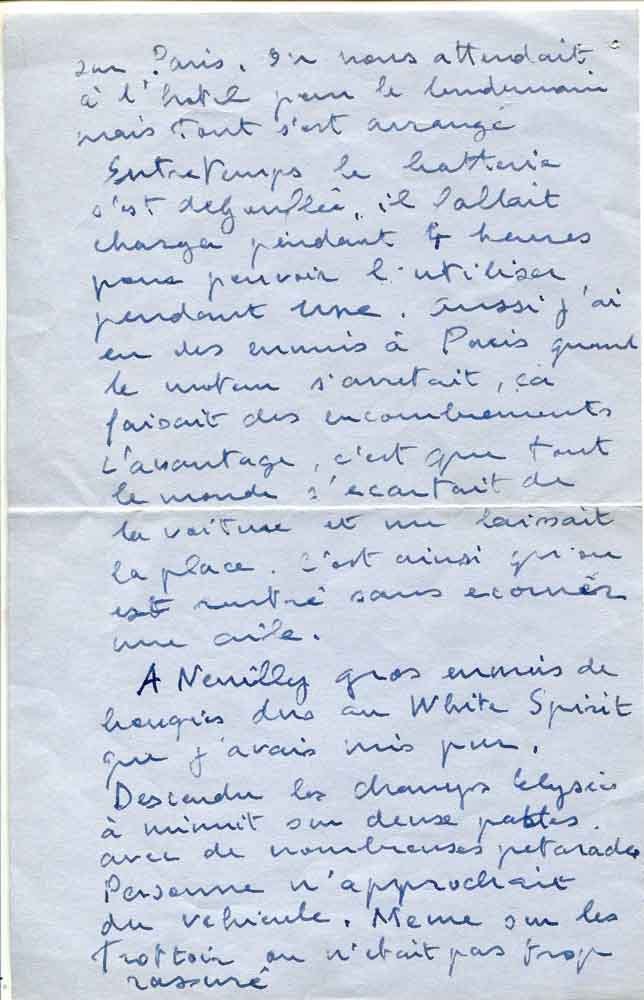 sur Paris. On nous attendait
à l'hotel pour le lendemain
mais tout s'est arrangé
Entretemps la batterie
s'est dégonflée, il fallait
charger pendant 4 heures
pour pouvoir l'utiliser
pendant une. Aussi j'ai
eu des ennuis à Paris quand
le moteur s'arretait, ça
faisait des encombrements
L'avantage, c'est que tout
le monde s'ecartait de
la voiture et me laissait
la place. C'est ainsi qu'on
est rentré sans ecorner
une aile.
A Neuilly gros ennuis de
bougies dus au White Spirit
que j'avais mis pur.
Descendu les champs Elysées
à minuit sur deux pattes
avec de nombreuses petarades
Personne n'approchait
du vehicule. Meme sur les
trottoir on n'était pas trop
rassuré